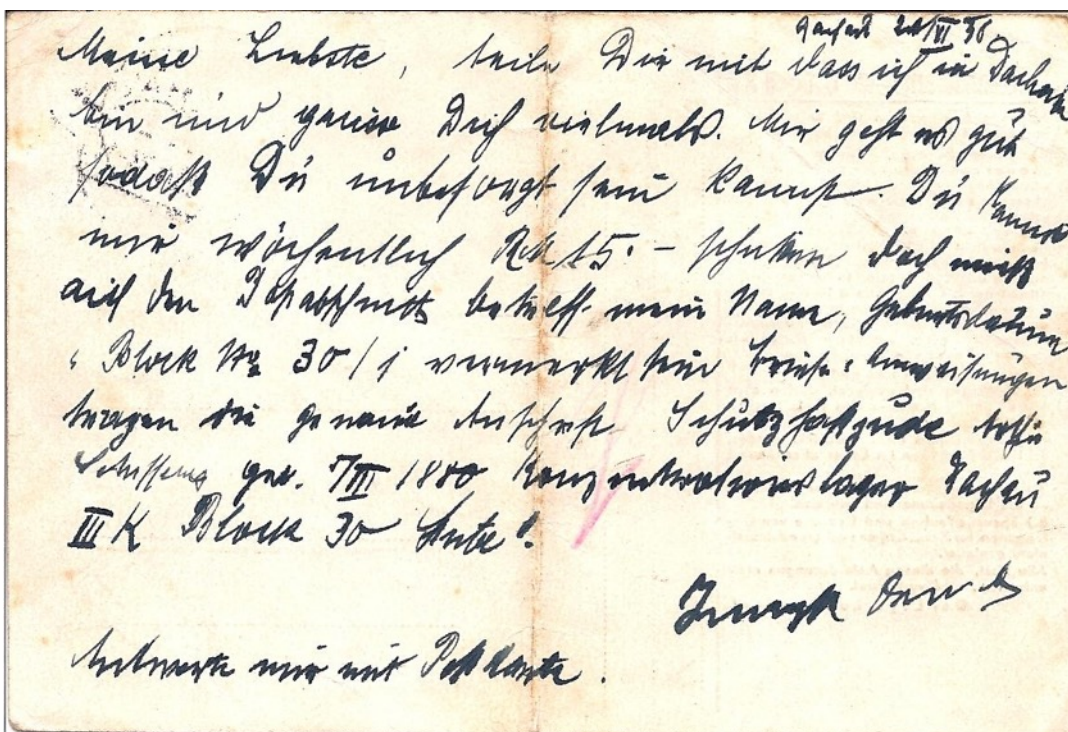 Dachau 24/VI 38
Meine Liebste, teile Dir mit dass ich in Dachau
bin und grüsse Dich vielmals. Mir geht es gut
sodaß Du unbesorgt sein kannst. Du kannst
mir wöchentlich RM 15.– schicken doch muß
auf den Postabschnitt betreff. mein Name, Geburtsdatum
Block No 30/j vermerkt sein Briefe Anweisungen
tragen die genaue Anschrift Schutzhaftjude
geb. 7/III 1880 Konzentrationslager Dachau
III K Block 30 Stube
Antworte mir mit Postkarte.